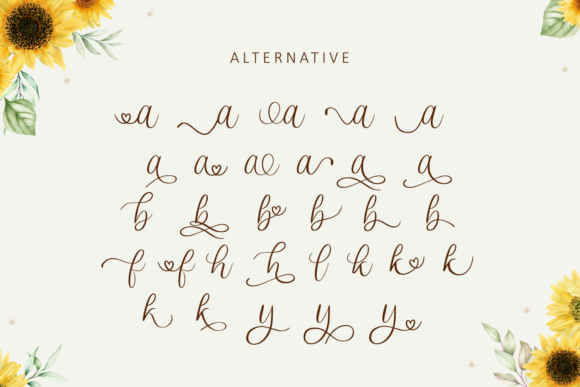 ALTERNATIVE
a a a a a
a a a a a a
b b b b b b
f f h h l k k k
k k y y y